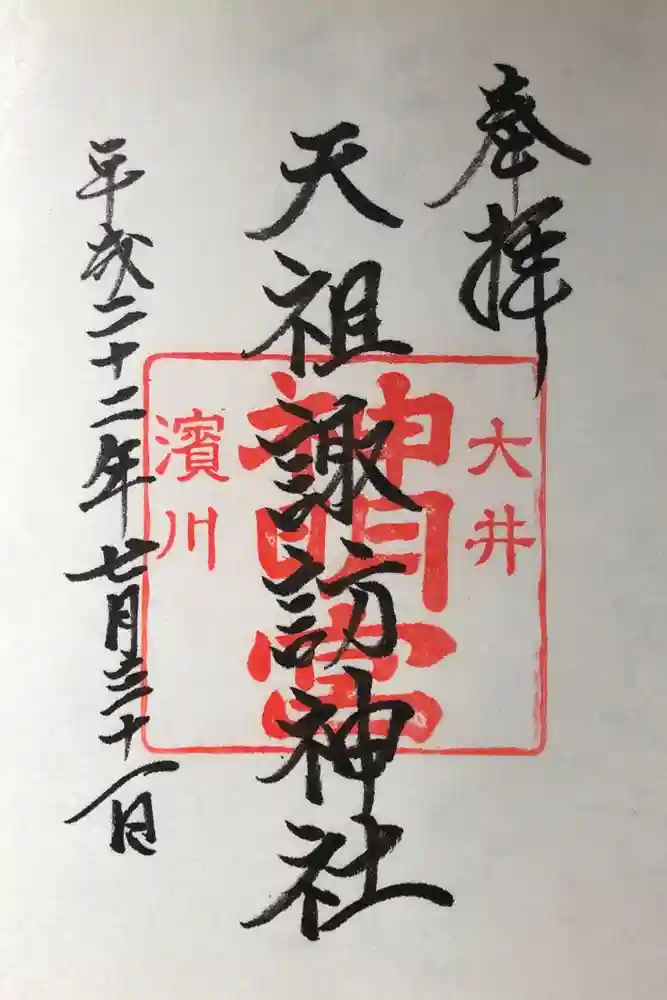 奉拝
天祖諏訪神社
平成二十二年七月二十八日
大井
神明宮
濱川